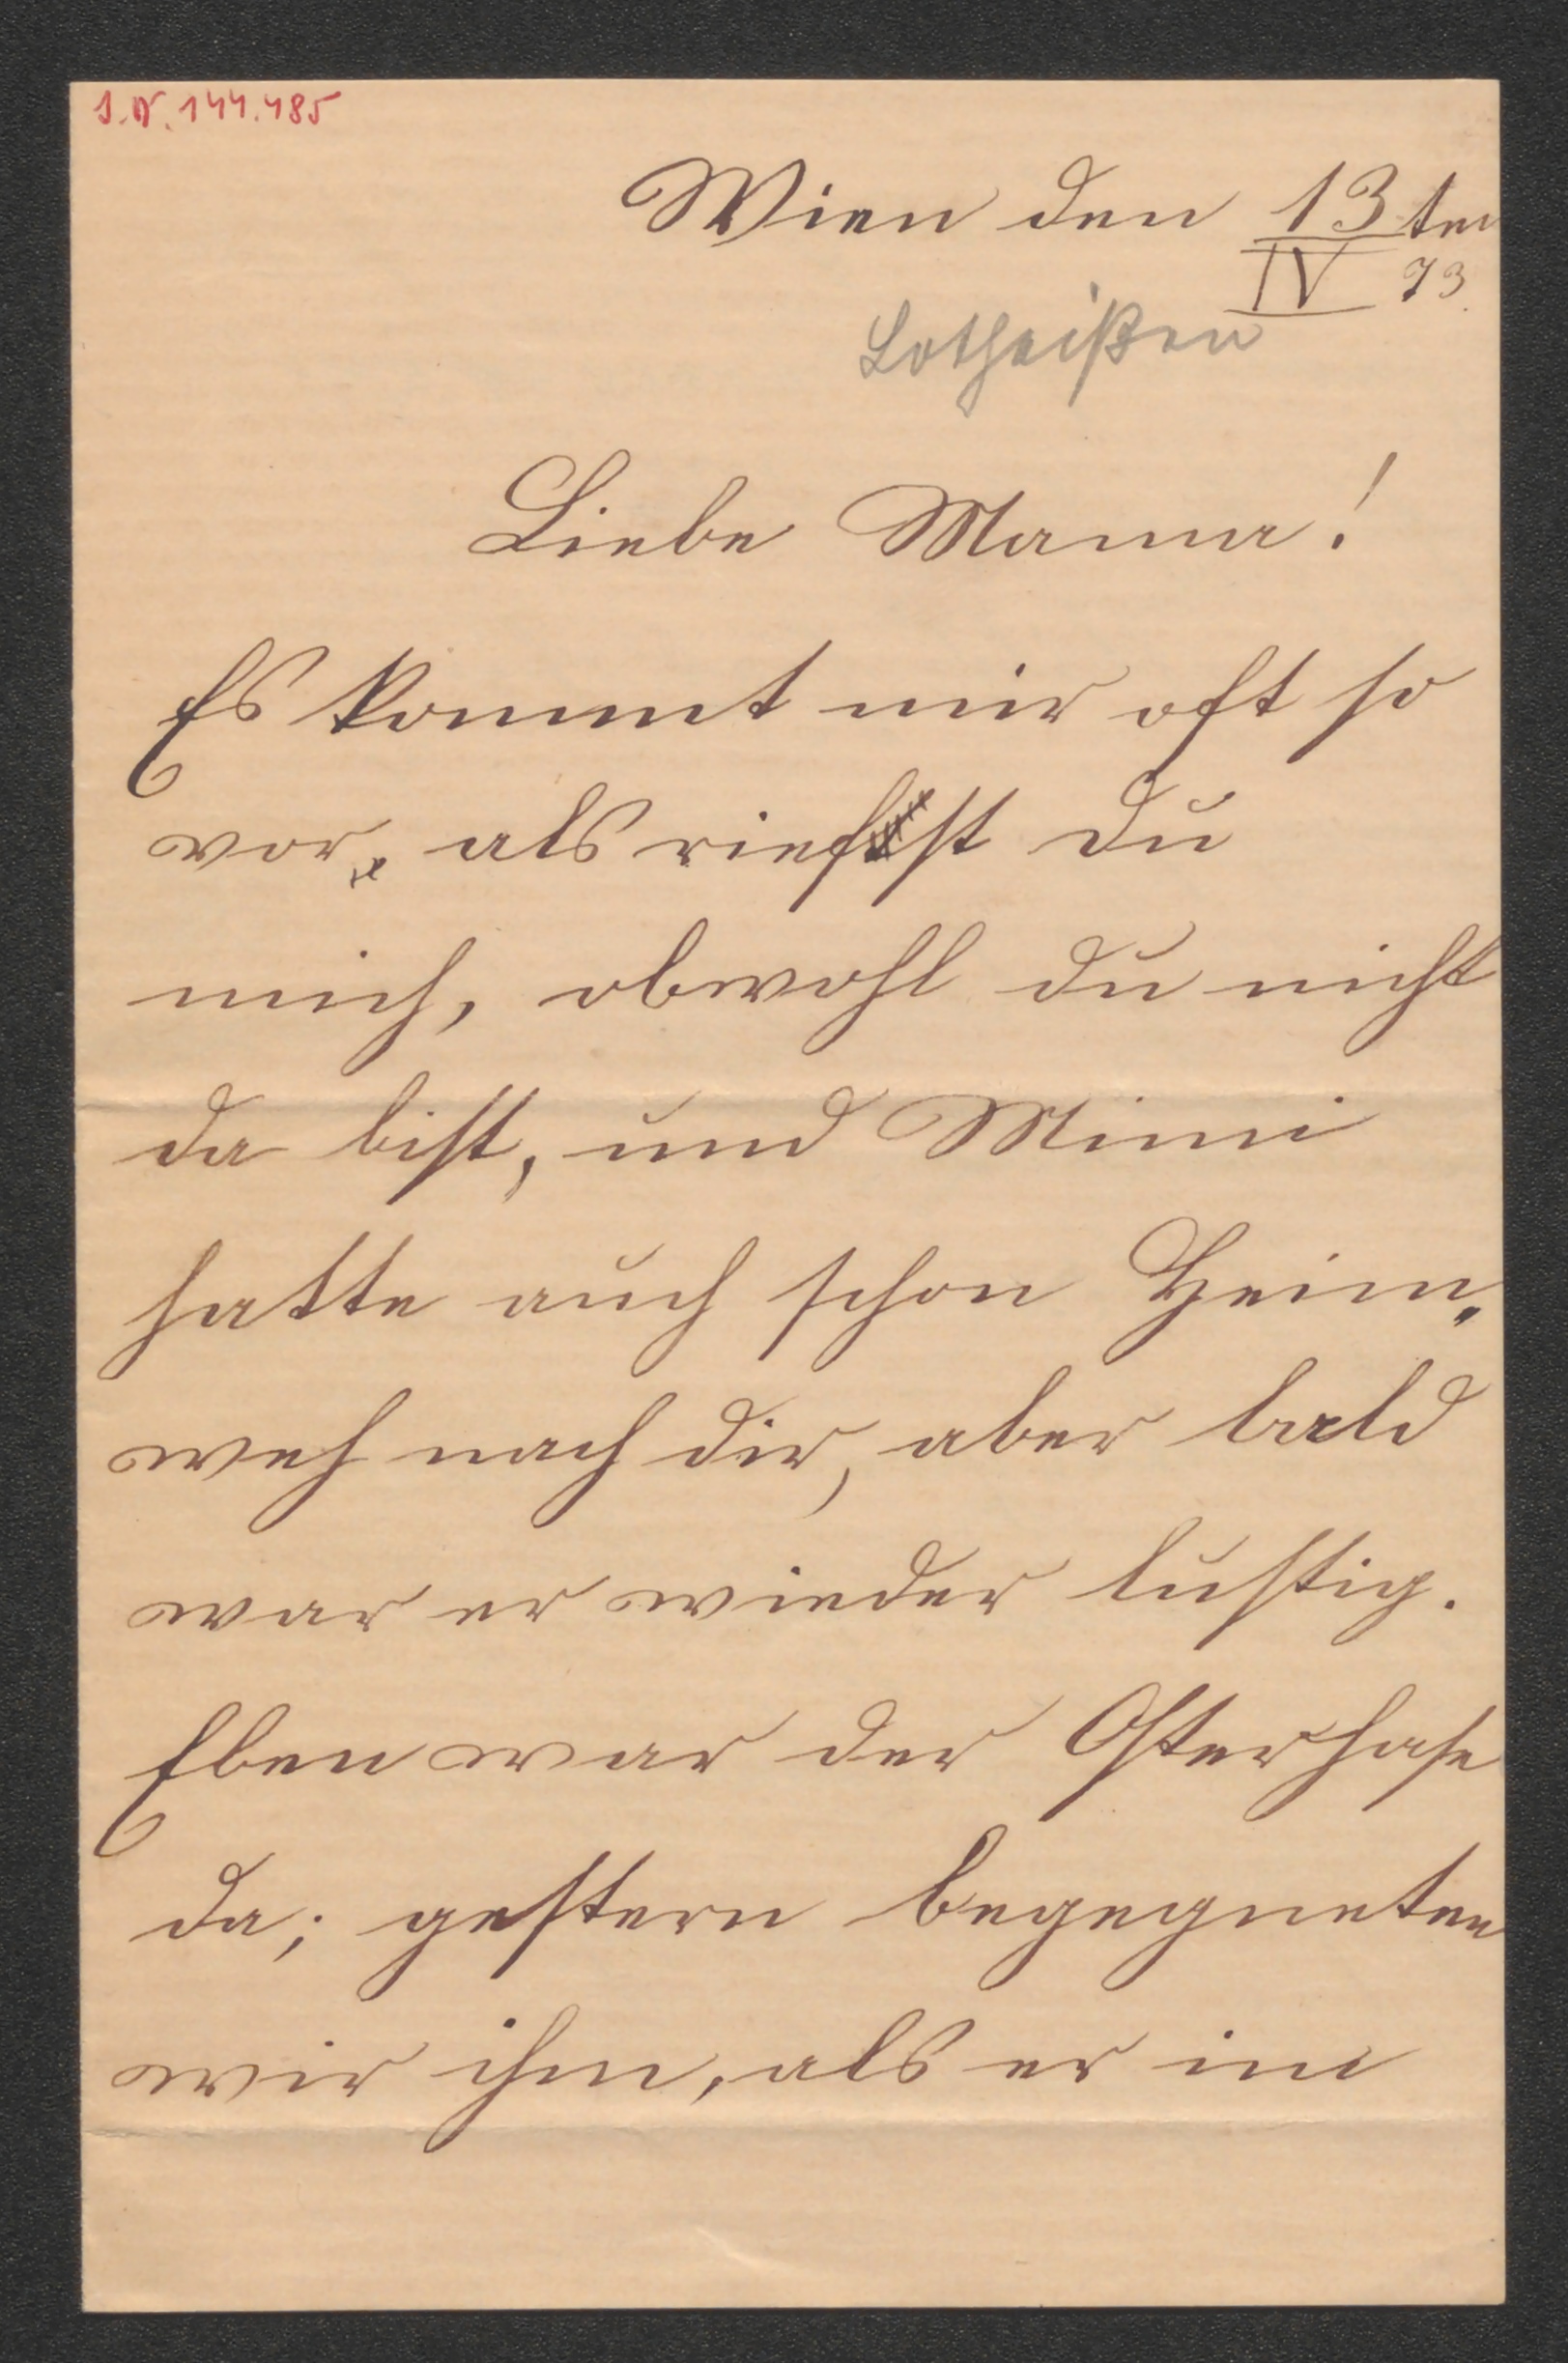 I.N. 144.485
Wien den 13ten
IV 73.
Lotheißen
Liebe Mama!
Es kommt mir oft so
vor, als riefst du
mich, obwohl du nicht
da bist, und Mimi
hatte auch schon Heim„
weh nach dir, aber bald
war er wieder lustig.
Eben war der Osterhase
da; gestern begegneten
wir ihm, als er im